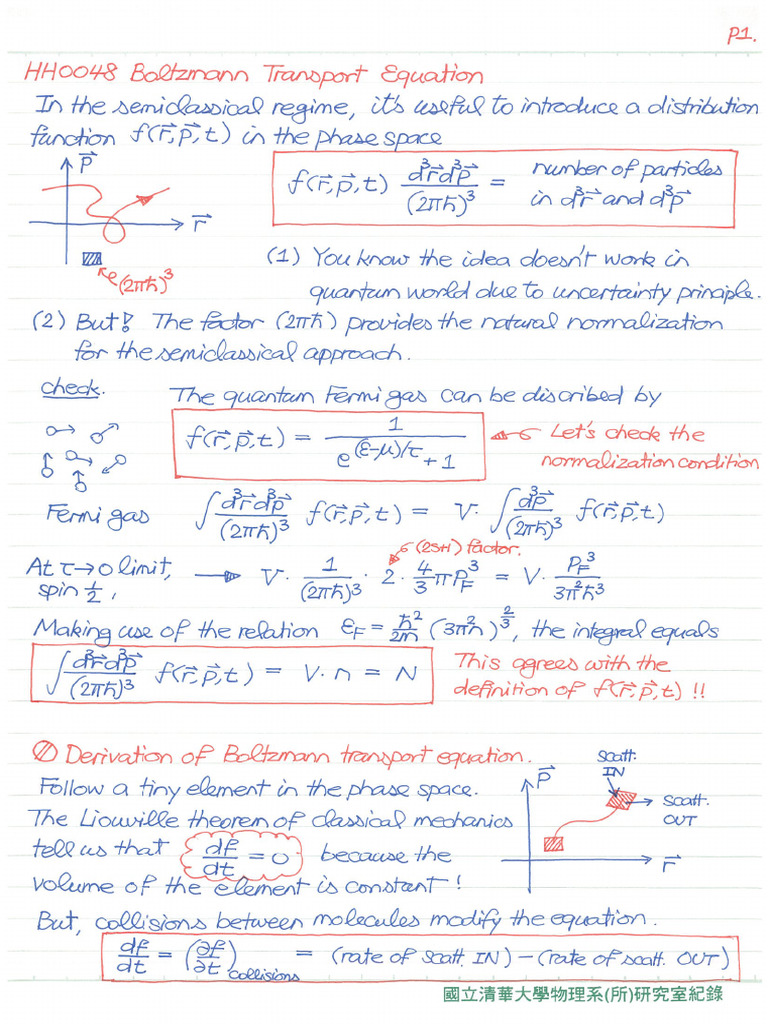 P1.
HH0048 Boltzmann Transport Equation
In the semiclassical regime, it's useful to introduce a distribution
function f(r⃗,p⃗,t) in the phase space
p⃗
r⃗
(2πħ)³
f(r⃗,p⃗,t) d³r⃗d³p⃗/(2πħ)³ = number of particles
in d³r⃗ and d³p⃗
(1) You know the idea doesn't work in
quantum world due to uncertainty principle.
(2) But! The factor (2πħ) provides the natural normalization
for the semiclassical approach.
check.
The quantum Fermi gas can be discribed by
f(r⃗,p⃗,t) = 1/(e^(ε-μ)/τ + 1)
Let's check the
normalization condition
Fermi gas
∫ d³r⃗d³p⃗/(2πħ)³ f(r⃗,p⃗,t) = V· ∫ d³p⃗/(2πħ)³ f(r⃗,p⃗,t)
(2S+1) factor.
At τ→0 limit,
spin ½,
→ V· 1/(2πħ)³ · 2 · 4/3 πP_F³ = V· P_F³/3π²ħ³
Making use of the relation ε_F = ħ²/2m (3π²n)^⅔, the integral equals
∫ d³r⃗d³p⃗/(2πħ)³ f(r⃗,p⃗,t) = V·n = N
This agrees with the
definition of f(r⃗,p⃗,t) !!
Derivation of Boltzmann transport equation.
Follow a tiny element in the phase space.
The Liouville theorem of classical mechanics
tell us that df/dt = 0 because the
volume of the element is constant!
p⃗
r⃗
scatt.
IN
scatt.
OUT
But, collisions between molecules modify the equation.
df/dt = (∂f/∂t)collisions = (rate of scatt. IN) - (rate of scatt. OUT)
國立清華大學物理系(所)研究室紀錄